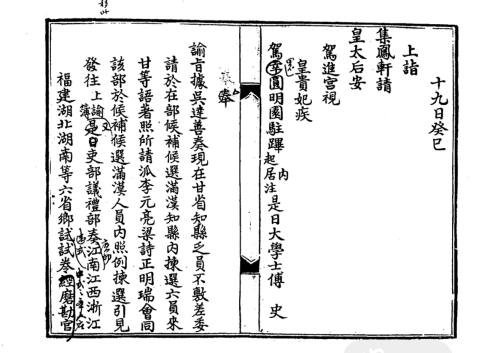 十九日癸巳
上詣
集鳳軒請
皇太后安
駕進宮視
皇貴妃疾
駕還圓明園駐蹕
起居注
內
是日大學士傅 史
奉
諭旨據吳達善奏現在甘省知縣乏員不敷差委
請於在部候補候選滿漢知縣內揀選六員來
甘等語著照所請派李元亮梁詩正明瑞會同
該部於候補候選滿漢人員內照例揀選引見
發往上諭是日吏部議禮部奏江南江西浙江
福建湖北湖南等六省鄉試試卷經磨勘官